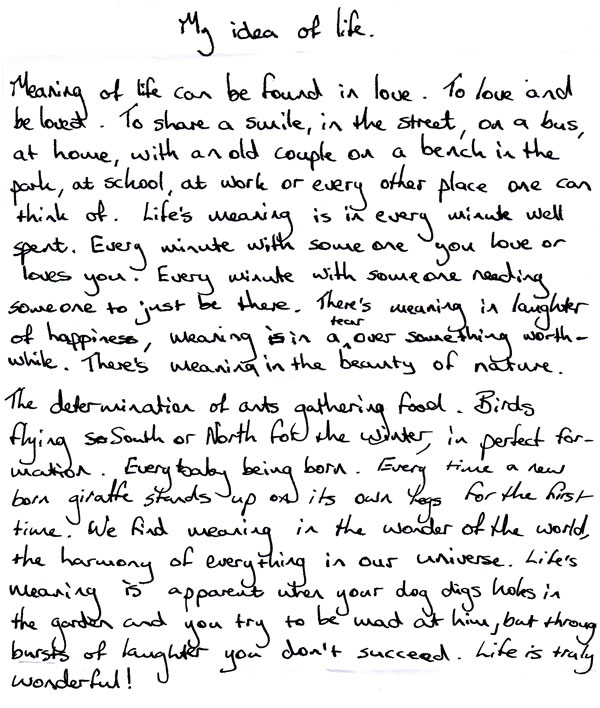 My idea of life.
Meaning of life can be found in love. To love and
be loved. To share a smile, in the street, on a bus,
at home, with an old couple on a bench in the
park, at school, at work or every other place one can
think of. Life's meaning is in every minute well
spent. Every minute with someone you love or
loves you. Every minute with someone needing
someone to just be there. There's meaning in laughter
of happiness, meaning is in a tear over something worth-
while. There's meaning in the beauty of nature.
The determination of ants gathering food. Birds
flying so South or North for the winter, in perfect for-
mation. Every baby being born. Every time a new
born giraffe stands up on its own legs for the first
time. We find meaning in the wonder of the world,
the harmony of everything in our universe. Life's
meaning is apparent when your dog digs holes in
the garden and you try to be mad at him, but throug
bursts of laughter you don't succeed. Life is truly
wonderful!